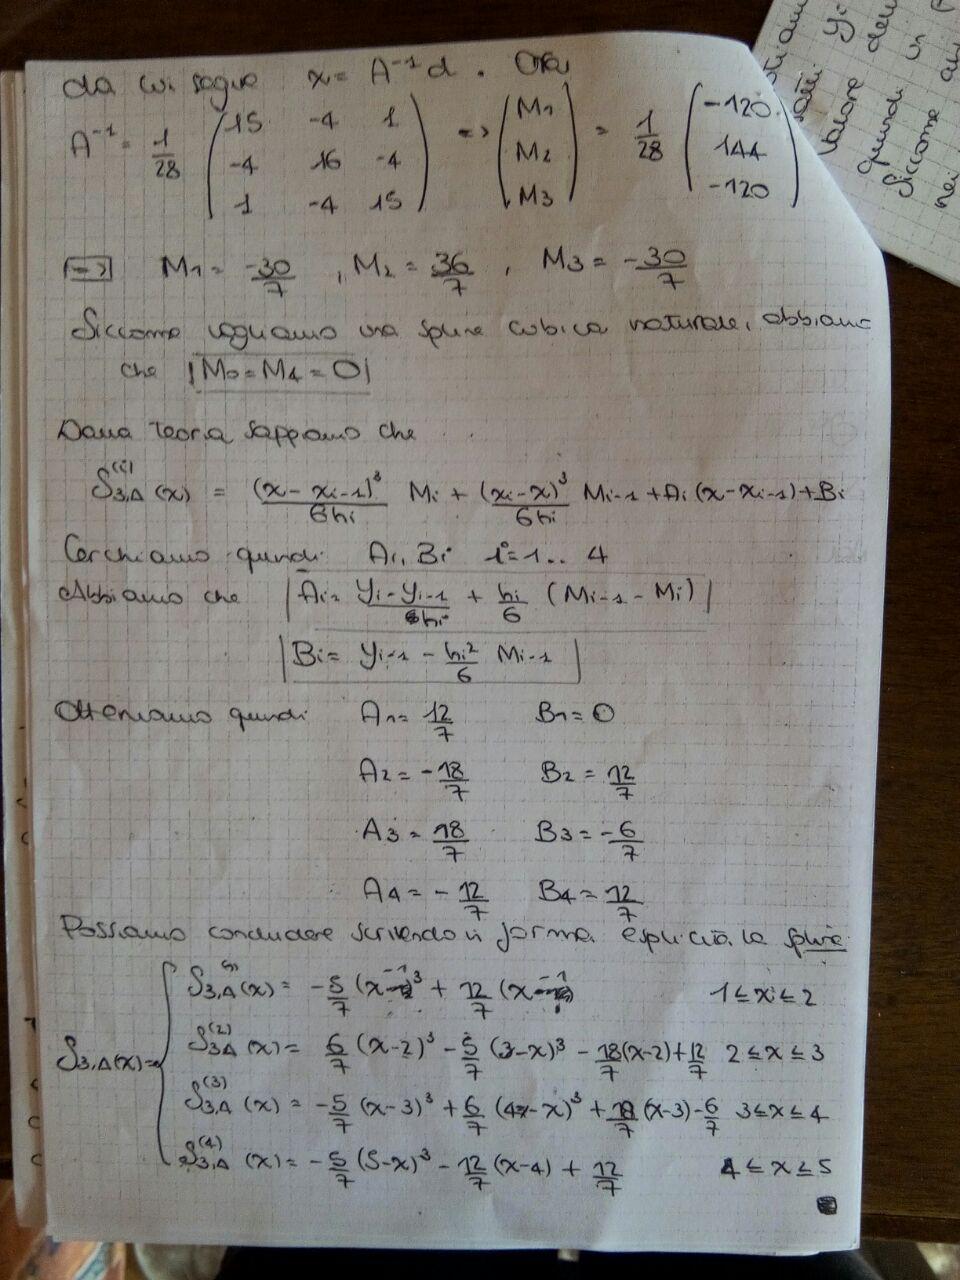 da cui segue x = A⁻¹d. Ora
A⁻¹ = 1/28 ( 15 -4 1 ; -4 16 -4 ; 1 -4 15 ) => ( M1 ; M2 ; M3 ) = 1/28 ( -120 ; 144 ; -120 )
=> M1 = -30/7 , M2 = 36/7 , M3 = -30/7
Siccome vogliamo una spline cubica naturale, abbiamo
che M0 = M4 = 0
Dalla teoria sappiamo che
S3,Δ^(i) (x) = (x - xi-1)³/6hi Mi + (xi - x)³/6hi Mi-1 + Ai (x - xi-1) + Bi
Cerchiamo quindi Ai, Bi i=1.. 4
Abbiamo che Ai = yi - yi-1/hi + hi/6 (Mi-1 - Mi)
Bi = yi-1 - hi²/6 Mi-1
Otteniamo quindi A1 = 12/7 B1 = 0
A2 = -18/7 B2 = 12/7
A3 = 18/7 B3 = -6/7
A4 = -12/7 B4 = 12/7
Possiamo concludere scrivendo in forma esplicita la spline
S3,Δ(x) =
S3,Δ^(1) (x) = -5/7 (x-1)³ + 12/7 (x-1) 1 ≤ x ≤ 2
S3,Δ^(2) (x) = 6/7 (x-2)³ - 5/7 (3-x)³ - 18/7 (x-2) + 12/7 2 ≤ x ≤ 3
S3,Δ^(3) (x) = -5/7 (x-3)³ + 6/7 (4-x)³ + 18/7 (x-3) - 6/7 3 ≤ x ≤ 4
S3,Δ^(4) (x) = -5/7 (5-x)³ - 12/7 (x-4) + 12/7 4 ≤ x ≤ 5
valore
quindi in
Siccome
nei